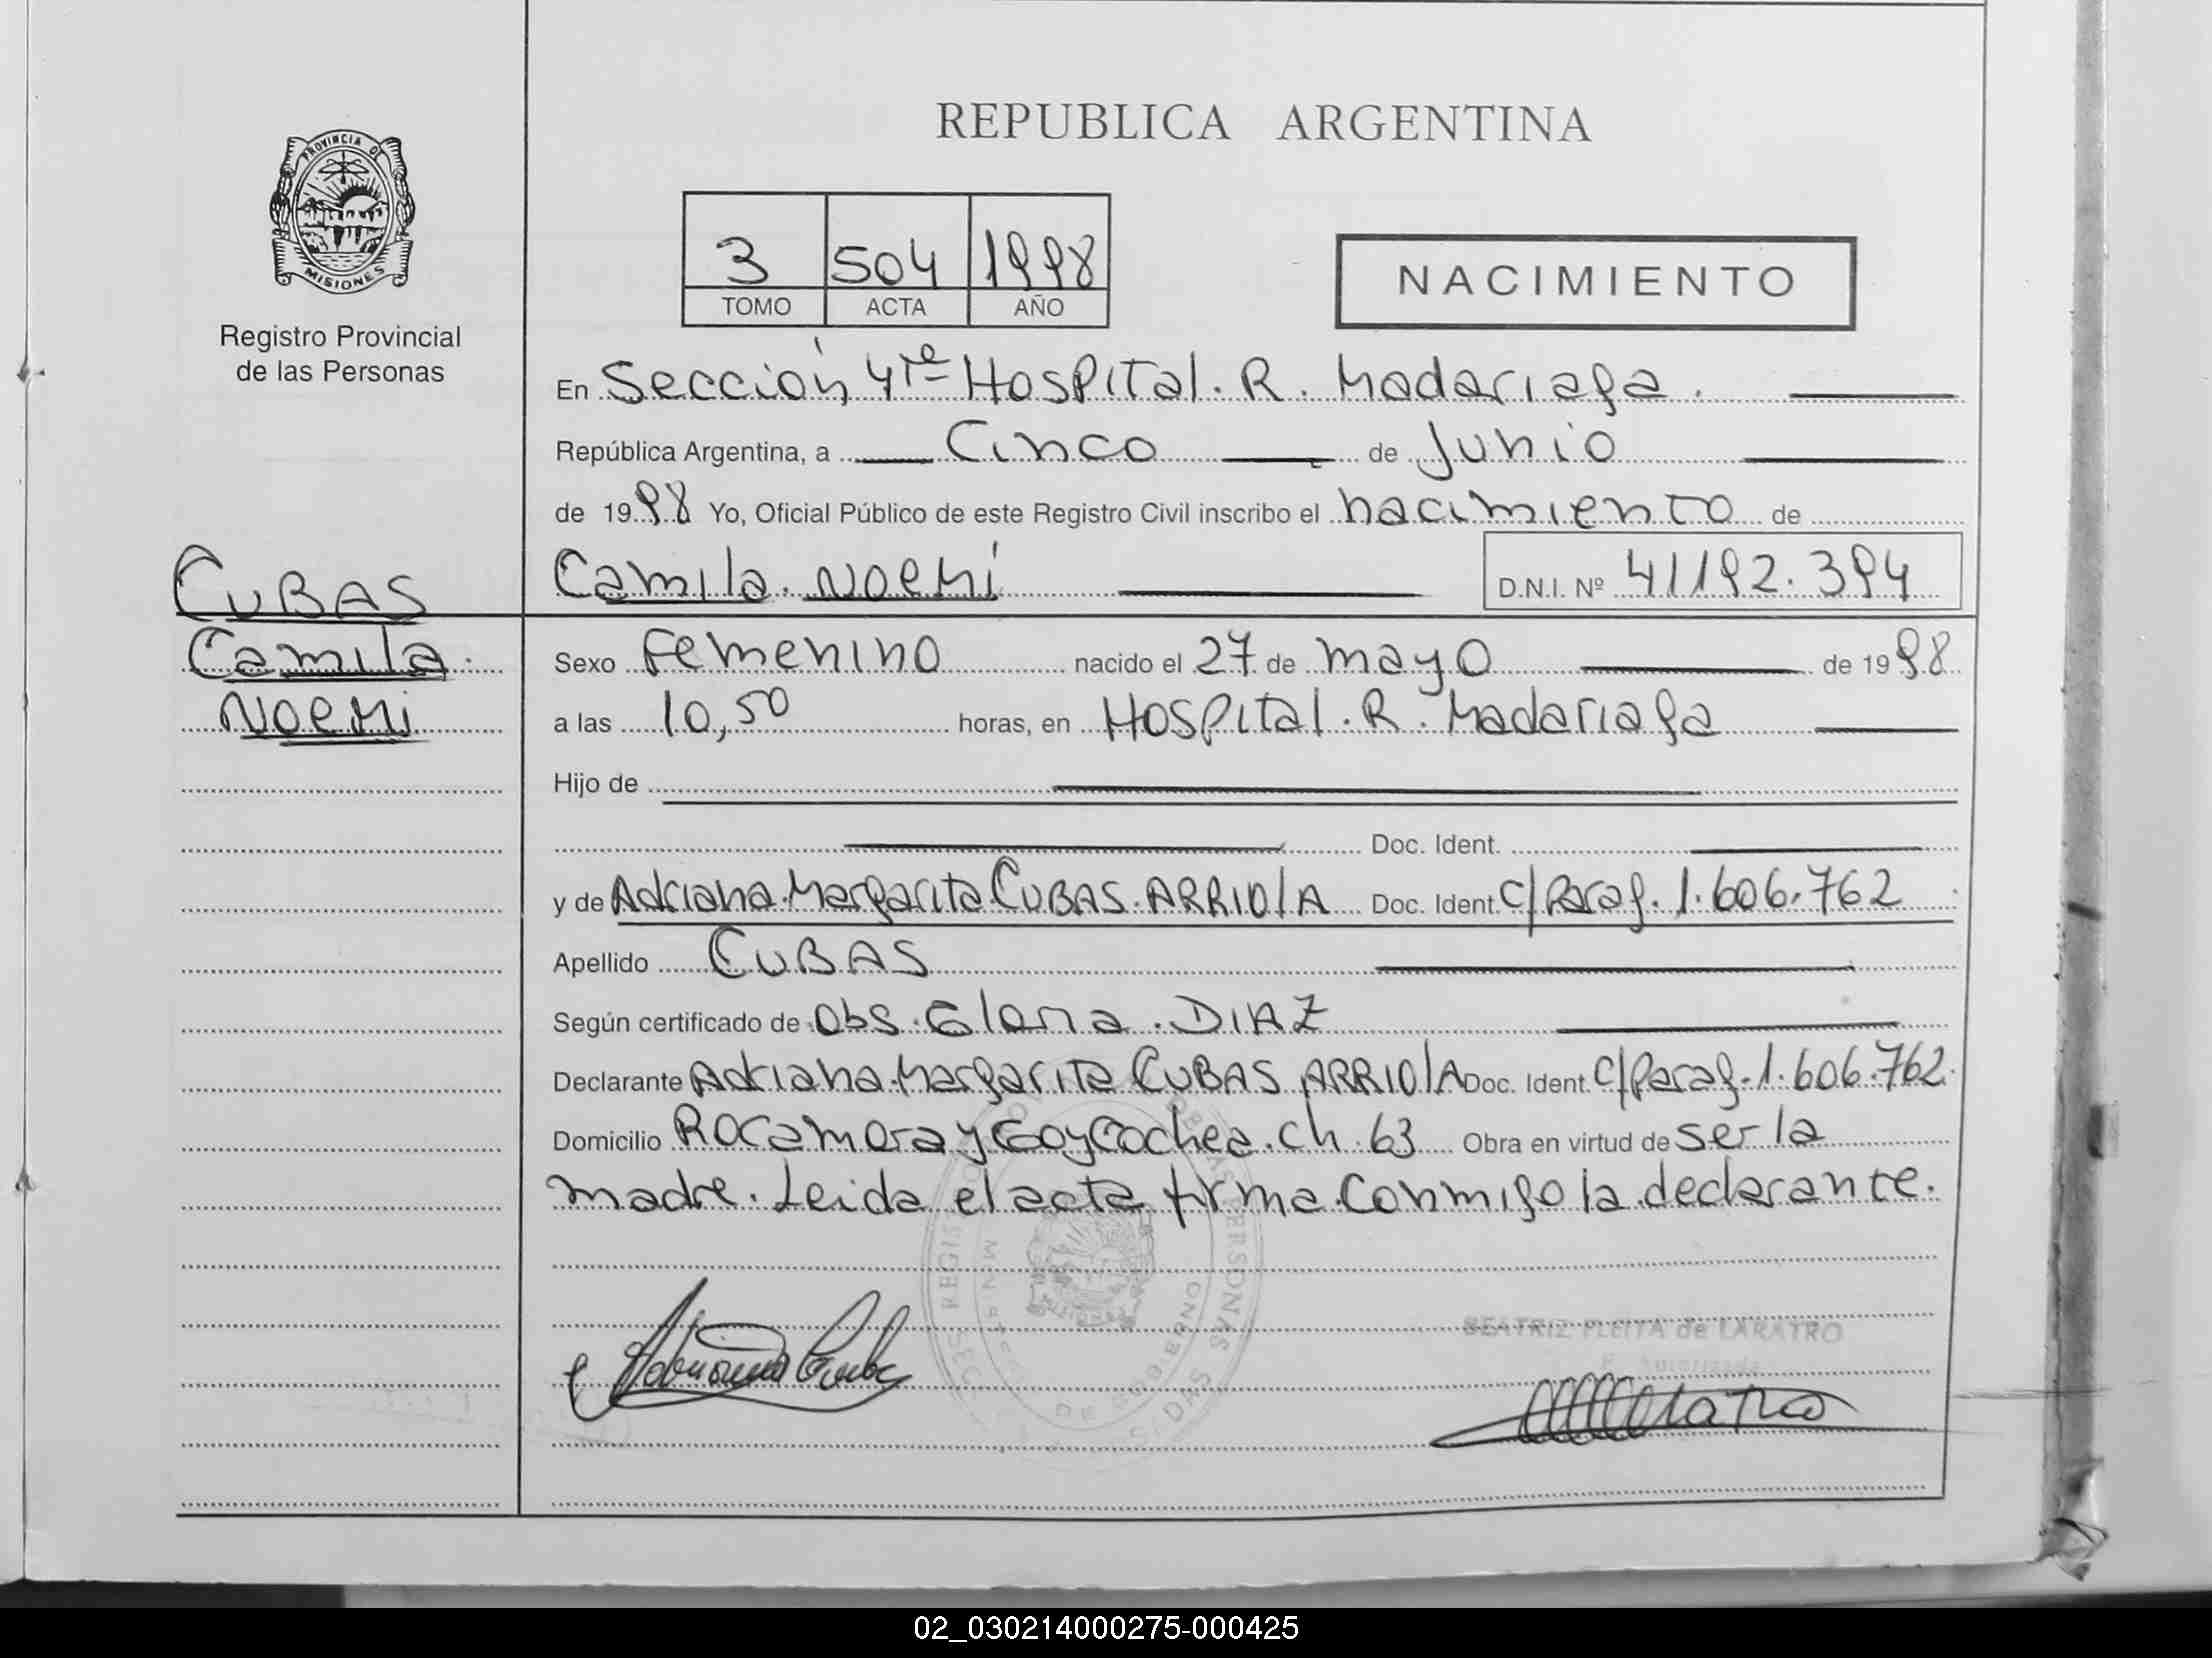 REPUBLICA ARGENTINA
PROVINCIA DE
MISIONES
Registro Provincial
de las Personas
3 504 1998
TOMO ACTA AÑO
NACIMIENTO
En Sección 4ta Hospital. R. Madariaga.
República Argentina, a Cinco de Junio
de 1998 Yo, Oficial Público de este Registro Civil inscribo el nacimiento de
Camila. Noemí
D.N.I. Nº 41192.394
CUBAS
Camila.
Noemi
Sexo Femenino nacido el 27 de mayo de 1998
a las 10,50 horas, en Hospital. R. Madariaga
Hijo de
Doc. Ident.
y de Adriana. Margarita CUBAS. ARRIOlA Doc. Ident. C/Parag. 1.606.762
Apellido CUBAS
Según certificado de Obs. Gloria. DIAZ
Declarante Adriana. Margarita CUBAS ARRIOlA Doc. Ident. C/Parag. 1.606.762
Domicilio Rocamora y Goycochea. Ch. 63 Obra en virtud de ser la
madre. Leida el acta firma conmigo la declarante.
BEATRIZ PLEITA de LARATRO
Autorizada
02_030214000275-000425